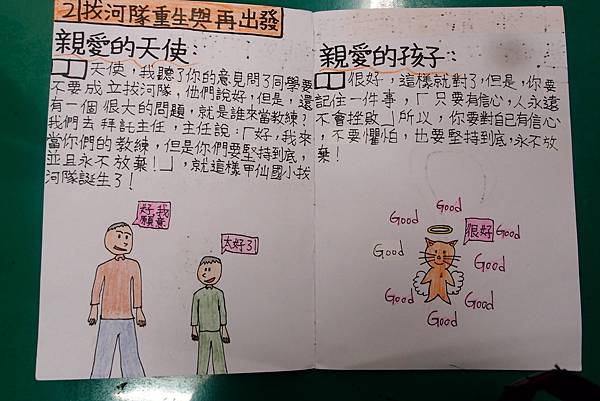 2拔河隊重生與再出發
親愛的天使：
天使，我聽了你的意見問了同學要
不要成立拔河隊，他們說好，但是，還
有一個很大的問題，就是誰來當教練？
我們去拜託主任，主任說：「好，我來
當你們的教練，但是你們要堅持到底，
並且永不放棄！」，就這樣甲仙國小拔
河隊誕生了！
好我
願意
太好了！
親愛的孩子：
很好，這樣就對了，但是，你要
記住一件事，「只要有信心，人永遠
不會挫敗」所以，你要對自己有信心
，不要懼怕，也要堅持到底，永不放
棄！
Good
Good
Good
很好
Good
Good
Good
Good
Good
Good